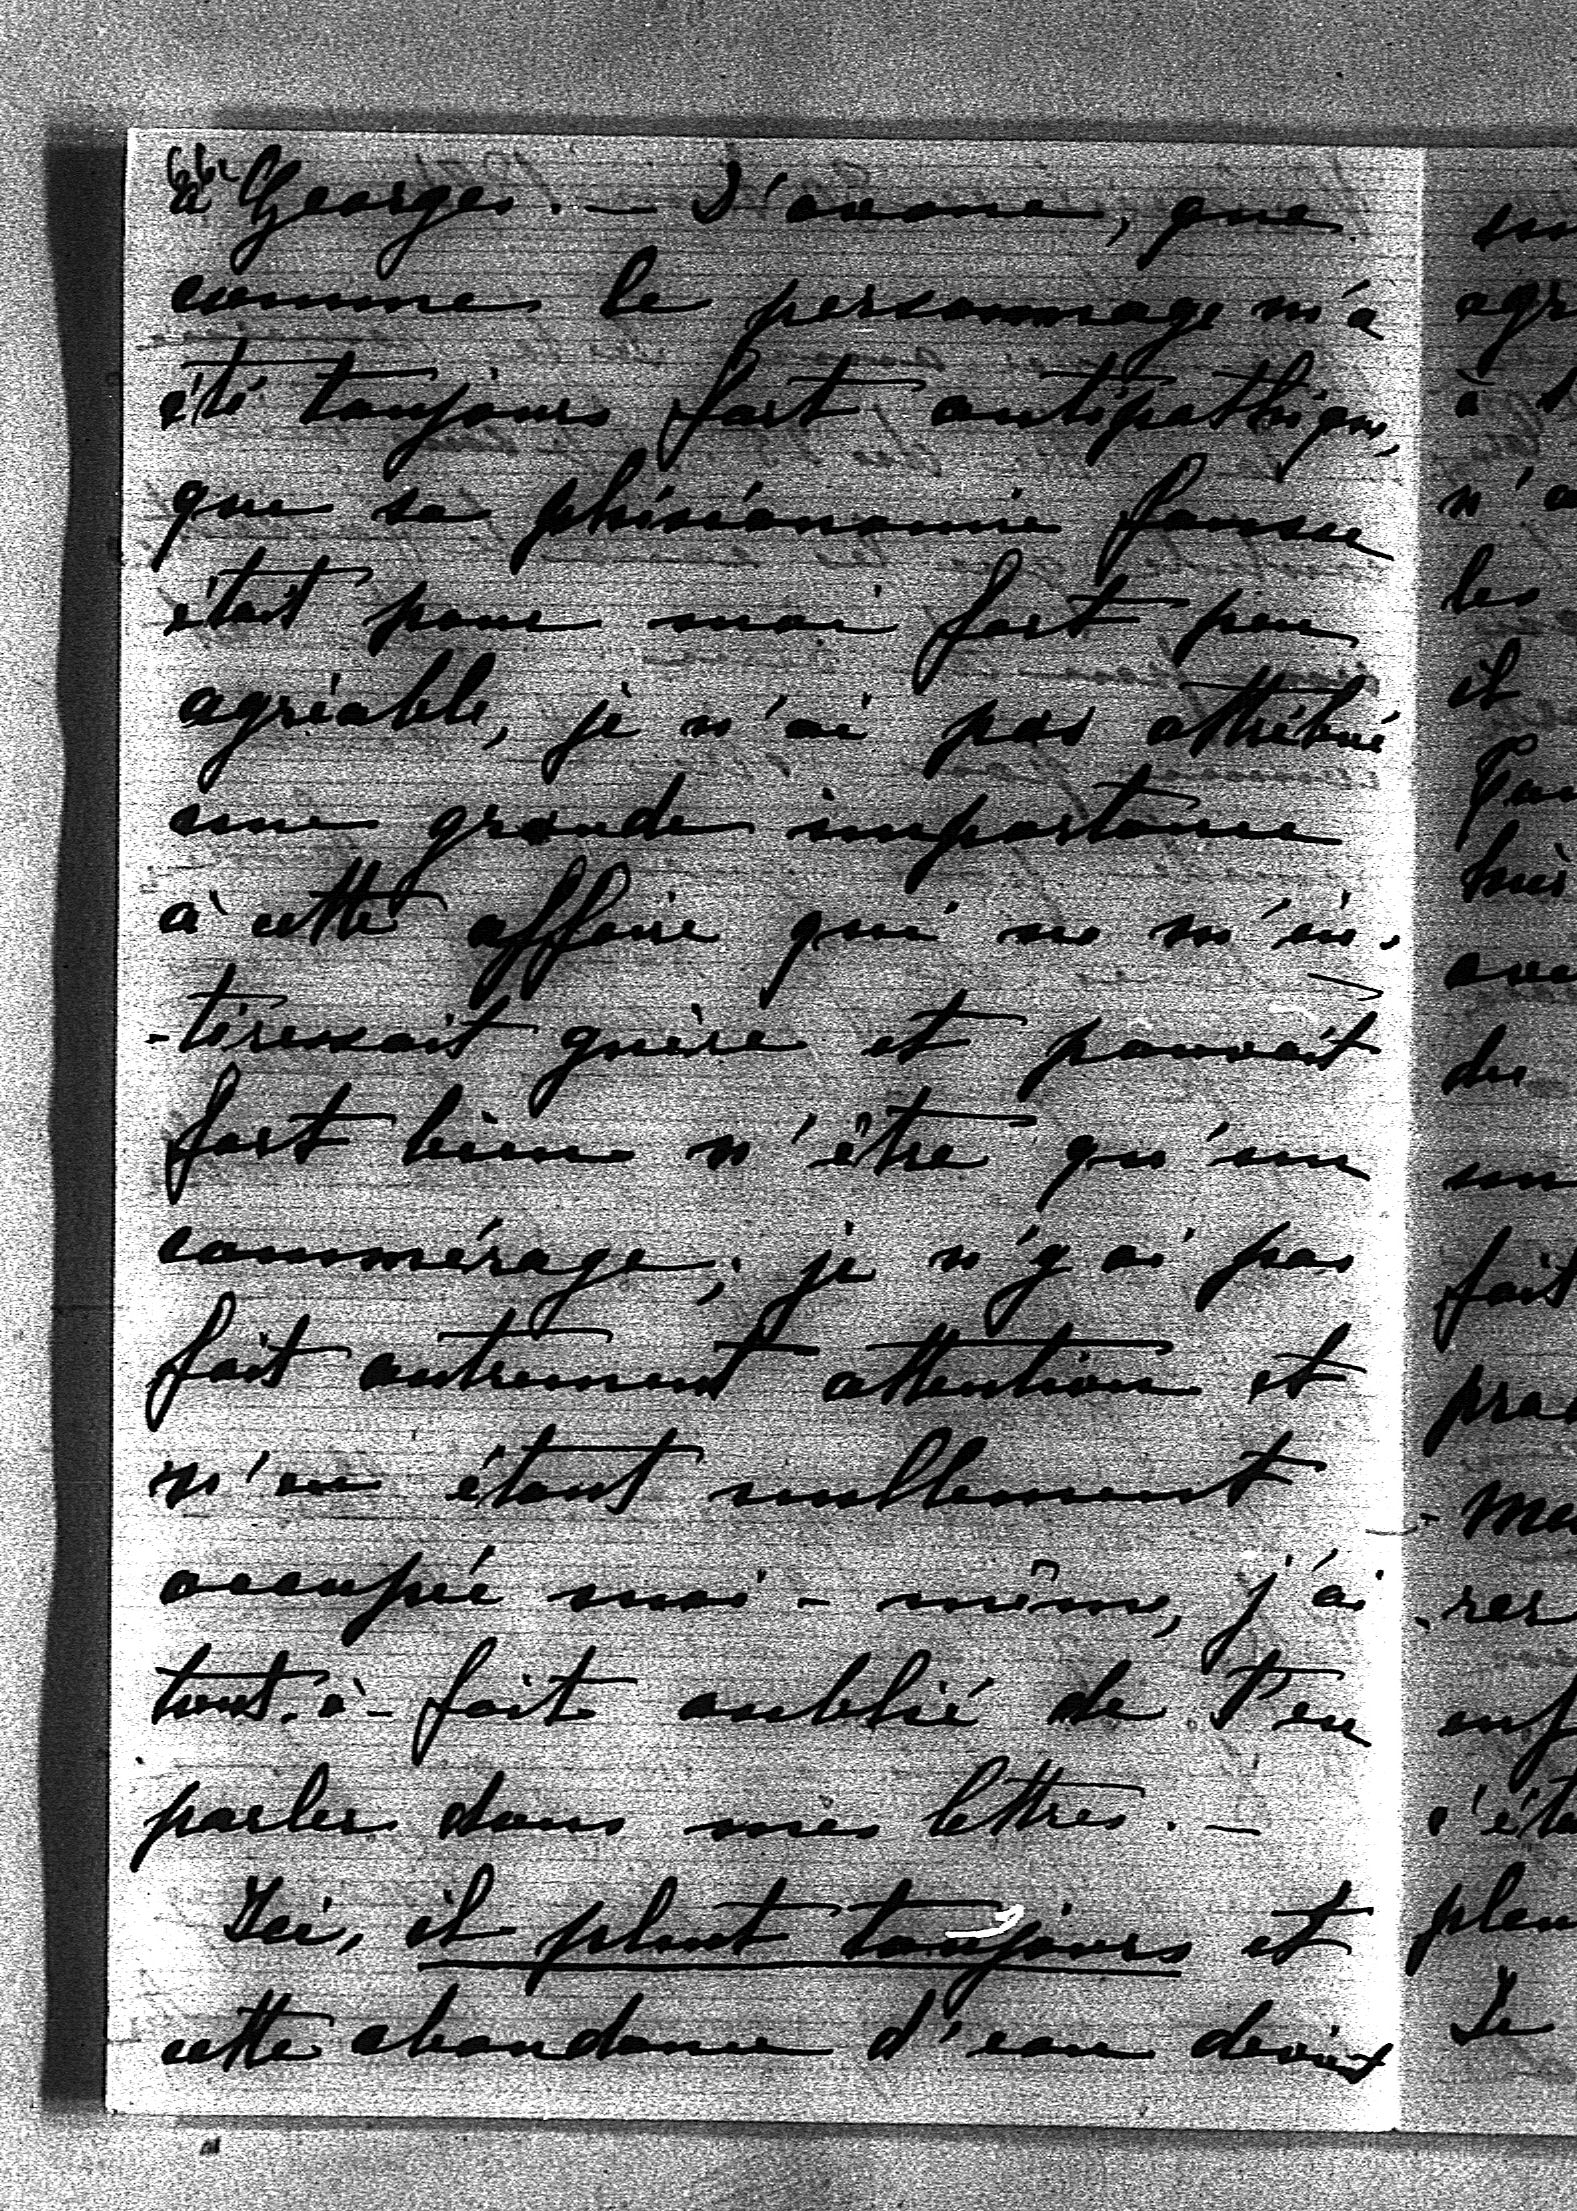 à Georges. — J'avoue, que
comme le personnage m'a
été toujours fort antipathique,
que sa phisionomie fausse
était pour moi fort peu
agréable, je n'ai pas attribué
une grande importance
à cette affaire qui ne m'in-
-téressait guère et pouvait
fort bien n'être qu'un
commérage; je n'y ai pas
fait autrement attention et
n'en étant nullement
occupée moi-même, j'ai
tout-à-fait oublié de t'en
parler dans mes lettres. —
Ici, il pleut toujours et
cette abondance d'eau devient